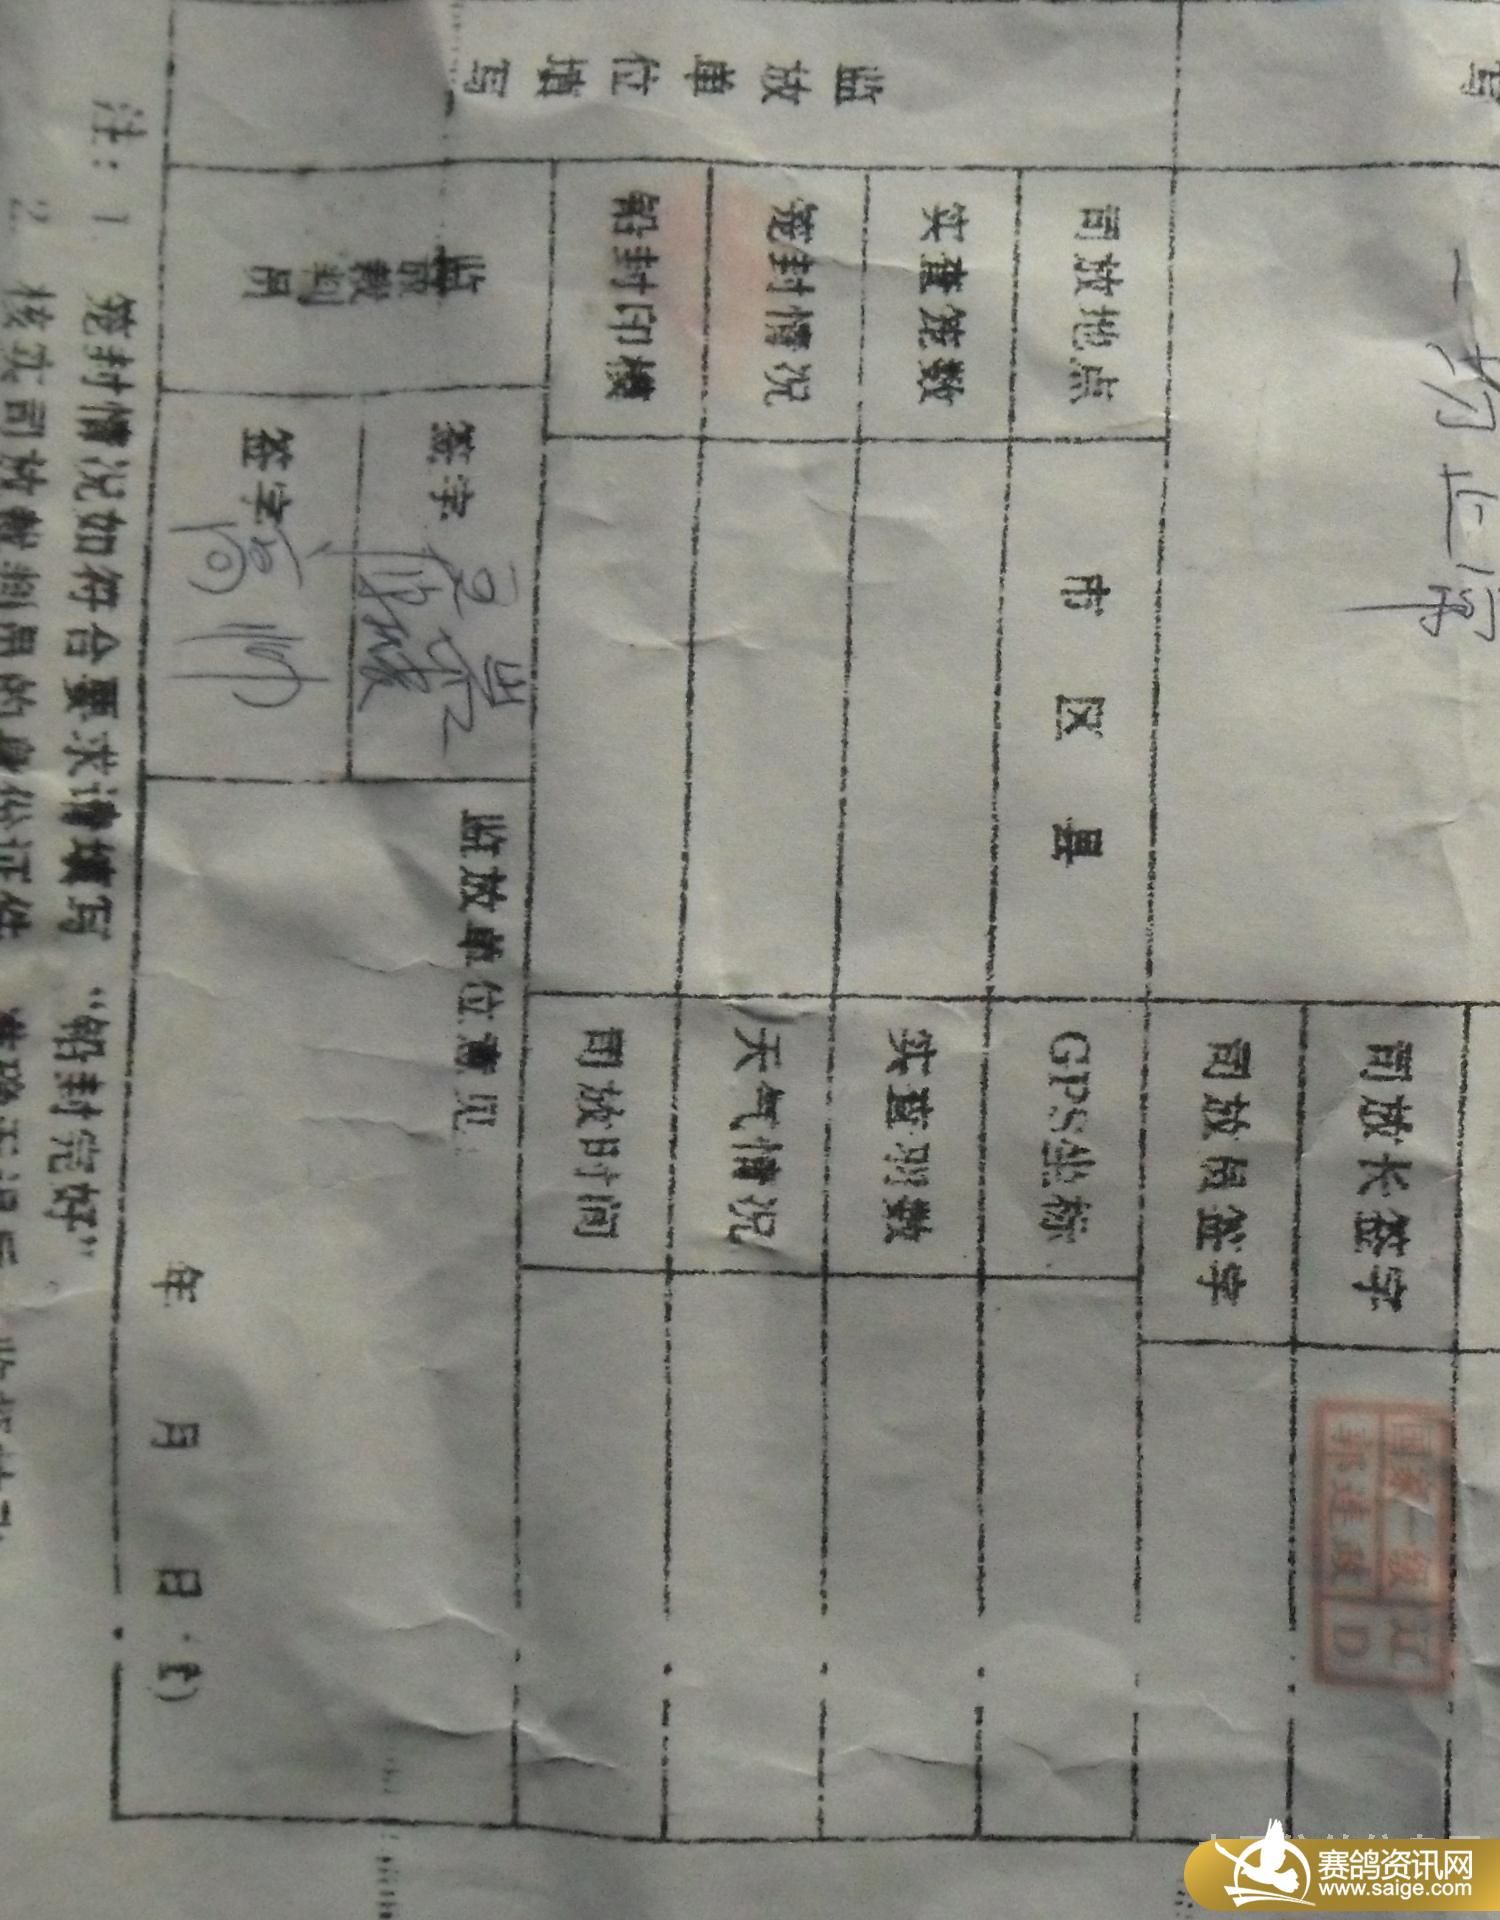 写
一切正常
司放长签字
国家一级 辽
郭连政 D
司放员签字
监放单位填写
司放地点
市 区 县
GPS坐标
实查笼数
实查羽数
笼封情况
天气情况
铅封印模
司放时间
监放裁判员
签字
签字
监放单位意见
年 月 日（章）
注：1 笼封情况如符合要求请填写“铅封完好”
2 核实司放裁判员的身份证件
赛鸽资讯网
www.saige.com